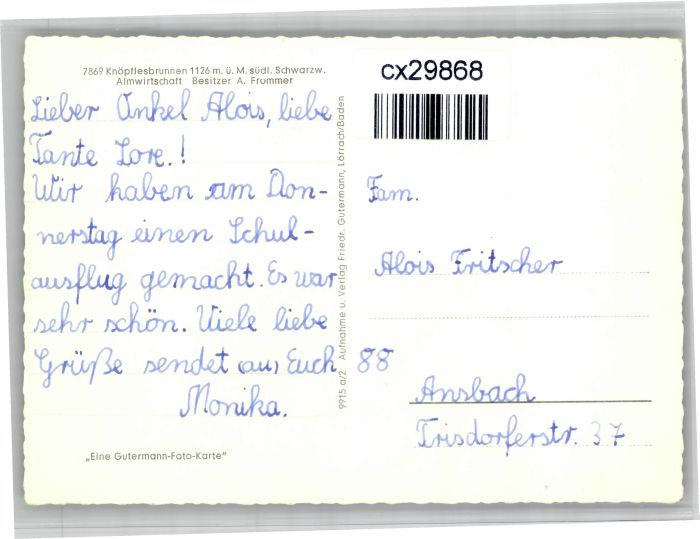 7869 Knöpflesbrunnen 1126 m. ü. M. südl. Schwarzw.
Almwirtschaft Besitzer A. Frommer
Lieber Onkel Alois, liebe
Tante Lore.!
Wir haben am Don-
nerstag einen Schul-
ausflug gemacht. Es war
sehr schön. Viele liebe
Grüße sendet an Euch
Monika.
„Eine Gutermann-Foto-Karte“
9915 a/2 Aufnahme u. Verlag Friedr. Gutermann, Lörrach/Baden
cx29868
Fam.
Alois Fritscher
88
Ansbach
Trisdorferstr. 37